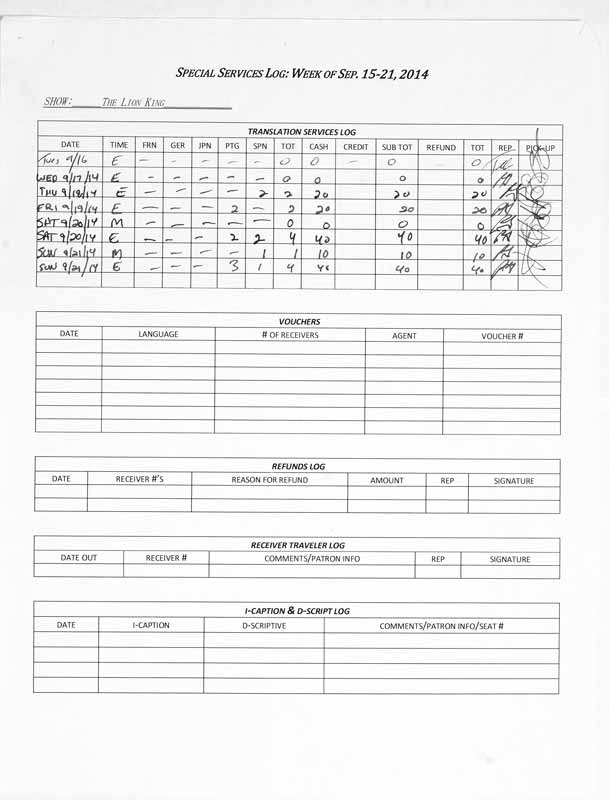 SPECIAL SERVICES LOG: WEEK OF SEP. 15-21, 2014
SHOW:_____THE LION KING____________
TRANSLATION SERVICES LOG
DATE TIME FRN GER JPN PTG SPN TOT CASH CREDIT SUB TOT REFUND TOT REP PICK-UP
Tues 9/16 E - - - - - 0 0 - 0 0
WED 9/17/14 E - - - - - 0 0 0 0
THU 9/18/14 E - - - - 2 2 20 20 20
FRI 9/19/14 E - - - 2 - 2 20 20 20
SAT 9/20/14 M - - - - - 0 0 0 0
SAT 9/20/14 E - - - 2 2 4 40 40 40
SUN 9/21/14 M - - - - 1 1 10 10 10
SUN 9/21/14 E - - - 3 1 4 40 40 40
VOUCHERS
DATE LANGUAGE # OF RECEIVERS AGENT VOUCHER #
REFUNDS LOG
DATE RECEIVER #'S REASON FOR REFUND AMOUNT REP SIGNATURE
RECEIVER TRAVELER LOG
DATE OUT RECEIVER # COMMENTS/PATRON INFO REP SIGNATURE
I-CAPTION & D-SCRIPT LOG
DATE I-CAPTION D-SCRIPTIVE COMMENTS/PATRON INFO/SEAT #